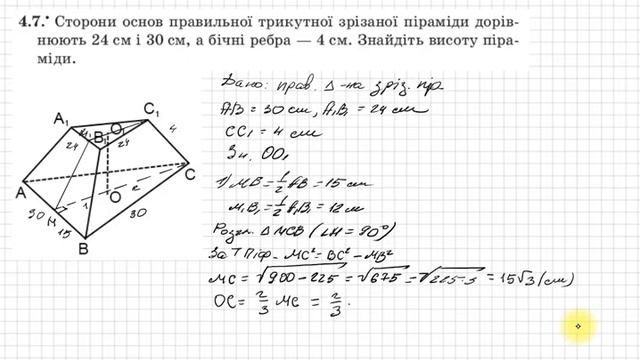 4.7.• Сторони основ правильної трикутної зрізаної піраміди дорів-
нюють 24 см і 30 см, а бічні ребра — 4 см. Знайдіть висоту піра-
міди.
Дано: прав. Δ-на зріз. пір.
AB = 30 см, A₁B₁ = 24 см
CC₁ = 4 см
Зн. OO₁
1) MB = 1/2 AB = 15 см
M₁B₁ = 1/2 A₁B₁ = 12 см
Розгл. Δ MCB (∠M = 90°)
За Т Піф - MC² = BC² - MB²
MC = √900 - 225 = √675 = √225·3 = 15√3 (см)
OC = 2/3 MC = 2/3 ·
A₁
C₁
M₁
O₁
B₁
24
24
4
A
C
O
30
M
15
B
30